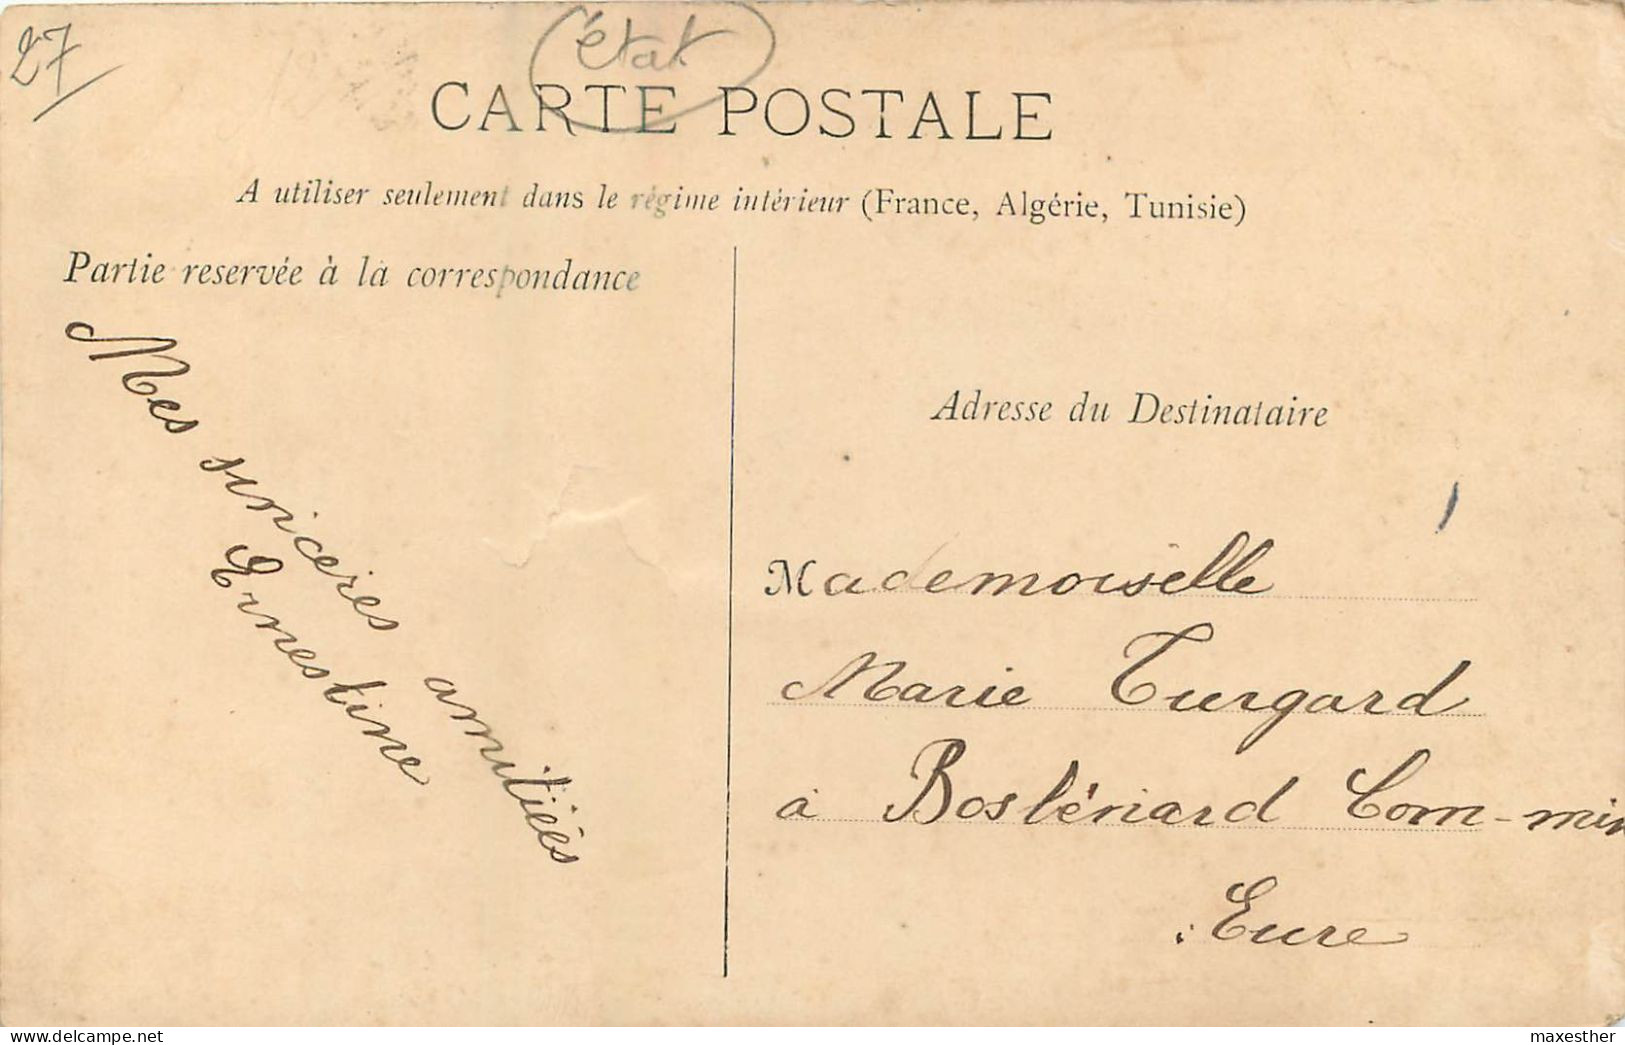 27
état
CARTE POSTALE
A utiliser seulement dans le régime intérieur (France, Algérie, Tunisie)
Partie reservée à la correspondance
Mes sinceries amitiéés
Ernestine
Adresse du Destinataire
Mademoiselle
Marie Turgard
à Boslériard Com-min
Eure
maxesther